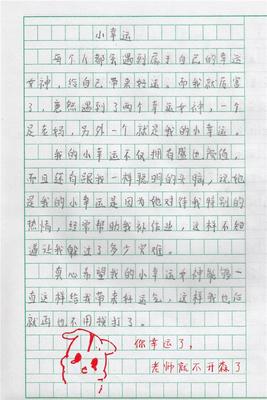 小幸运
每个人都会遇到属于自己的幸运
女神，给自己带来好运。而我就厉害
了，竟然遇到了两个幸运女神，一个
是老妈，另外一个就是我的小幸运。
我的小幸运不仅拥有盛世颜值，
而且还有跟我一样聪明的头脑，说她
是我的小幸运是因为她对待我特别的
热情，经常帮助我抄作业，这样不知
道让我躲过了多少灾难。
真心希望我的小幸运女神能够一
直这样给我带来好运气，这样我也后
就再也不用挨打了。
你幸运了，
老师就不开森了